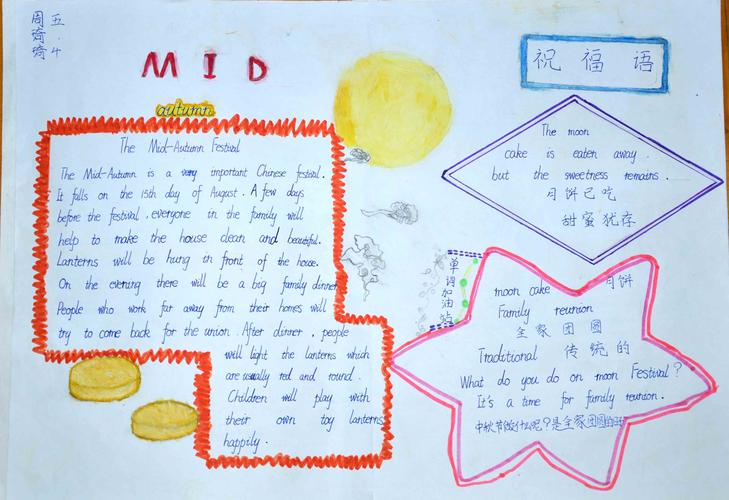 五.4
周琦琦
MID
autumn
The Mid-Autumn Festival
The Mid-Autumn is a very important Chinese festival.
It falls on the 15th day of August. A few days
before the festival, everyone in the family will
help to make the house clean and beautiful.
Lanterns will be hung in front of the house.
On the evening there will be a big family dinner.
People who work far away from their homes will
try to come back for the union. After dinner, people
will light the lanterns which
are usually red and round.
Children will play with
their own toy lanterns
happily.
祝福语
The moon
cake is eaten away.
but the sweetness remains.
月饼已吃
甜蜜犹存
单词加油站
moon cake 月饼
Family reunion
全家团圆
Traditional 传统的
What do you do on moon Festival?
It's a time for family reunion.
中秋节做什么呢?是全家团圆的